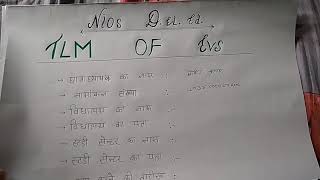 NIOS D.El.Ed.
TLM OF EVS
→ छात्राध्यापक का नाम :-
→ नामांकन संख्या :-
→ विद्यालय का नाम :-
→ विद्यालय का पता :-
→ स्टडी सेन्टर का नाम :-
→ स्टडी सेन्टर का पता :-